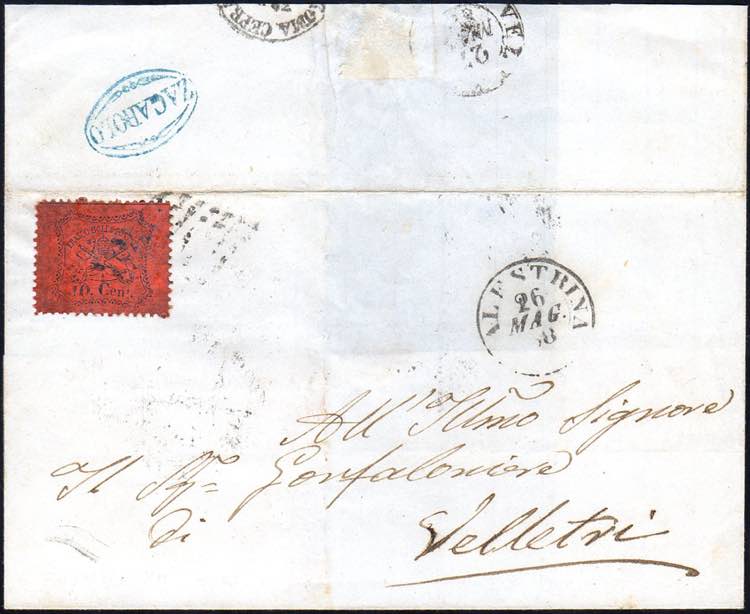 ZAGAROLO
FRANCO BOLLO
10. Cent
PALESTRINA
26
MAG.
68
All' Illmo Signore
Il Sigr Gonfaloniere
di Velletri